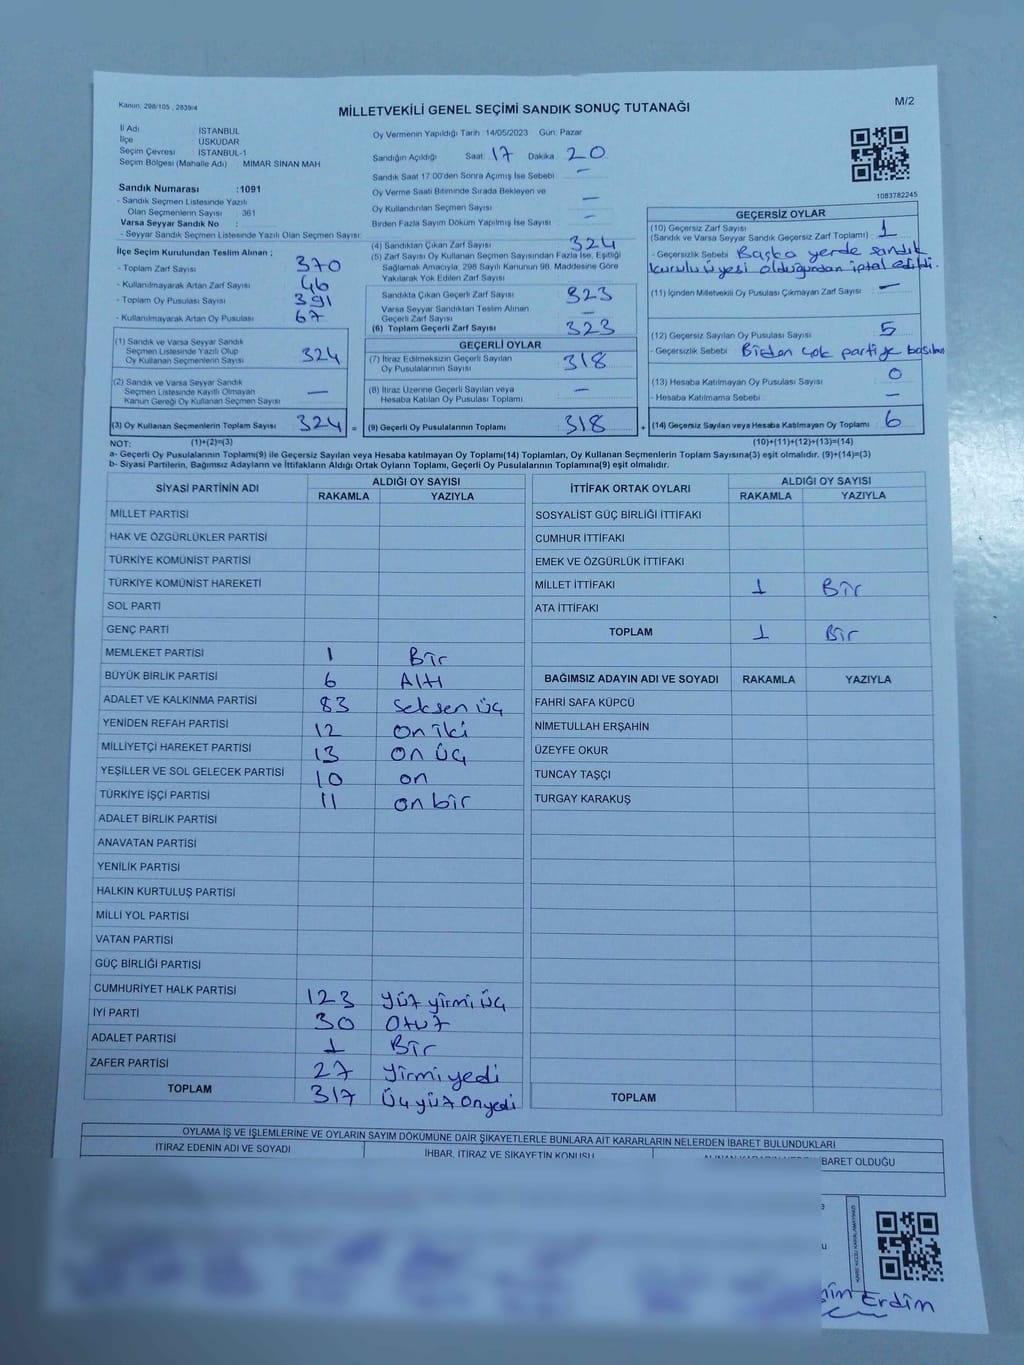 Kanun: 298/105 , 2839/4
MİLLETVEKİLİ GENEL SEÇİMİ SANDIK SONUÇ TUTANAĞI
M/2
İl Adı İSTANBUL
İlçe ÜSKÜDAR
Seçim Çevresi İSTANBUL-1
Seçim Bölgesi (Mahalle Adı) MİMAR SİNAN MAH
Oy Vermenin Yapıldığı Tarih 14/05/2023 Gün: Pazar
Sandığın Açıldığı Saat: 17 Dakika 20
Sandık Saat 17:00'den Sonra Açımış İse Sebebi : —
Oy Verme Saati Bitiminde Sırada Bekleyen ve
Oy Kullandırılan Seçmen Sayısı —
Birden Fazla Sayım Döküm Yapılmış İse Sayısı : –
1083782245
Sandık Numarası :1091
- Sandık Seçmen Listesinde Yazılı
Olan Seçmenlerin Sayısı : 361
Varsa Seyyar Sandık No :
- Seyyar Sandık Seçmen Listesinde Yazılı Olan Seçmen Sayısı:
İlçe Seçim Kurulundan Teslim Alınan ;
- Toplam Zarf Sayısı 370
- Kullanılmayarak Artan Zarf Sayısı 46
- Toplam Oy Pusulası Sayısı 391
- Kullanılmayarak Artan Oy Pusulası 67
(1) Sandık ve Varsa Seyyar Sandık
Seçmen Listesinde Yazılı Olup
Oy Kullanan Seçmenlerin Sayısı 324
(2) Sandık ve Varsa Seyyar Sandık
Seçmen Listesinde Kayıtlı Olmayan
Kanun Gereği Oy Kullanan Seçmen Sayısı —
(3) Oy Kullanan Seçmenlerin Toplam Sayısı 324 =
(4) Sandıktan Çıkan Zarf Sayısı 324
(5) Zarf Sayısı Oy Kullanan Seçmen Sayısından Fazla İse, Eşitliği
Sağlamak Amacıyla, 298 Sayılı Kanunun 98. Maddesine Göre
Yakılarak Yok Edilen Zarf Sayısı
Sandıkta Çıkan Geçerli Zarf Sayısı 323
Varsa Seyyar Sandıktan Teslim Alınan
Geçerli Zarf Sayısı —
(6) Toplam Geçerli Zarf Sayısı 323
GEÇERLİ OYLAR
(7) İtiraz Edilmeksizin Geçerli Sayılan
Oy Pusulalarının Sayısı: 318
(8) İtiraz Üzerine Geçerli Sayılan veya
Hesaba Katılan Oy Pusulası Toplamı —
(9) Geçerli Oy Pusulalarının Toplamı 318 +
GEÇERSİZ OYLAR
(10) Geçersiz Zarf Sayısı 1
(Sandık ve Varsa Seyyar Sandık Geçersiz Zarf Toplamı) :
- Geçersizlik Sebebi Başka yerde sandık
kurulu üyesi olduğundan iptal edildi.
(11) İçinden Milletvekili Oy Pusulası Çıkmayan Zarf Sayısı : —
(12) Geçersiz Sayılan Oy Pusulası Sayısı 5
- Geçersizlik Sebebi Birden çok partiye basılan
(13) Hesaba Katılmayan Oy Pusulası Sayısı 0
- Hesaba Katılmama Sebebi —
(14) Geçersiz Sayılan veya Hesaba Katılmayan Oy Toplamı 6
NOT: (1)+(2)=(3) (10)+(11)+(12)+(13)=(14)
a- Geçerli Oy Pusulalarının Toplamı(9) ile Geçersiz Sayılan veya Hesaba katılmayan Oy Toplamı(14) Toplamları, Oy Kullanan Seçmenlerin Toplam Sayısına(3) eşit olmalıdır. (9)+(14)=(3)
b- Siyasi Partilerin, Bağımsız Adayların ve İttifakların Aldığı Ortak Oyların Toplamı, Geçerli Oy Pusulalarının Toplamına(9) eşit olmalıdır.
SİYASİ PARTİNİN ADI ALDIĞI OY SAYISI
RAKAMLA YAZIYLA
MİLLET PARTİSİ
HAK VE ÖZGÜRLÜKLER PARTİSİ
TÜRKİYE KOMÜNİST PARTİSİ
TÜRKİYE KOMÜNİST HAREKETİ
SOL PARTİ
GENÇ PARTİ
MEMLEKET PARTİSİ 1 Bir
BÜYÜK BİRLİK PARTİSİ 6 Altı
ADALET VE KALKINMA PARTİSİ 83 Seksen üç
YENİDEN REFAH PARTİSİ 12 On iki
MİLLİYETÇİ HAREKET PARTİSİ 13 on üç
YEŞİLLER VE SOL GELECEK PARTİSİ 10 on
TÜRKİYE İŞÇİ PARTİSİ 11 on bir
ADALET BİRLİK PARTİSİ
ANAVATAN PARTİSİ
YENİLİK PARTİSİ
HALKIN KURTULUŞ PARTİSİ
MİLLİ YOL PARTİSİ
VATAN PARTİSİ
GÜÇ BİRLİĞİ PARTİSİ
CUMHURİYET HALK PARTİSİ 123 yüz yirmi üç
İYİ PARTİ 30 Otuz
ADALET PARTİSİ 1 Bir
ZAFER PARTİSİ 27 yirmi yedi
TOPLAM 317 Üç yüz on yedi
İTTİFAK ORTAK OYLARI ALDIĞI OY SAYISI
RAKAMLA YAZIYLA
SOSYALİST GÜÇ BİRLİĞİ İTTİFAKI
CUMHUR İTTİFAKI
EMEK VE ÖZGÜRLÜK İTTİFAKI
MİLLET İTTİFAKI 1 Bir
ATA İTTİFAKI
TOPLAM 1 Bir
BAĞIMSIZ ADAYIN ADI VE SOYADI RAKAMLA YAZIYLA
FAHRİ SAFA KÜPCÜ
NİMETULLAH ERŞAHİN
ÜZEYFE OKUR
TUNCAY TAŞÇI
TURGAY KARAKUŞ
TOPLAM
OYLAMA İŞ VE İŞLEMLERİNE VE OYLARIN SAYIM DÖKÜMÜNE DAİR ŞİKAYETLERLE BUNLARA AİT KARARLARIN NELERDEN İBARET BULUNDUKLARI
İTİRAZ EDENİN ADI VE SOYADI
İHBAR, İTİRAZ VE ŞİKAYETİN KONUSU
İBARET OLDUĞU
Erdin